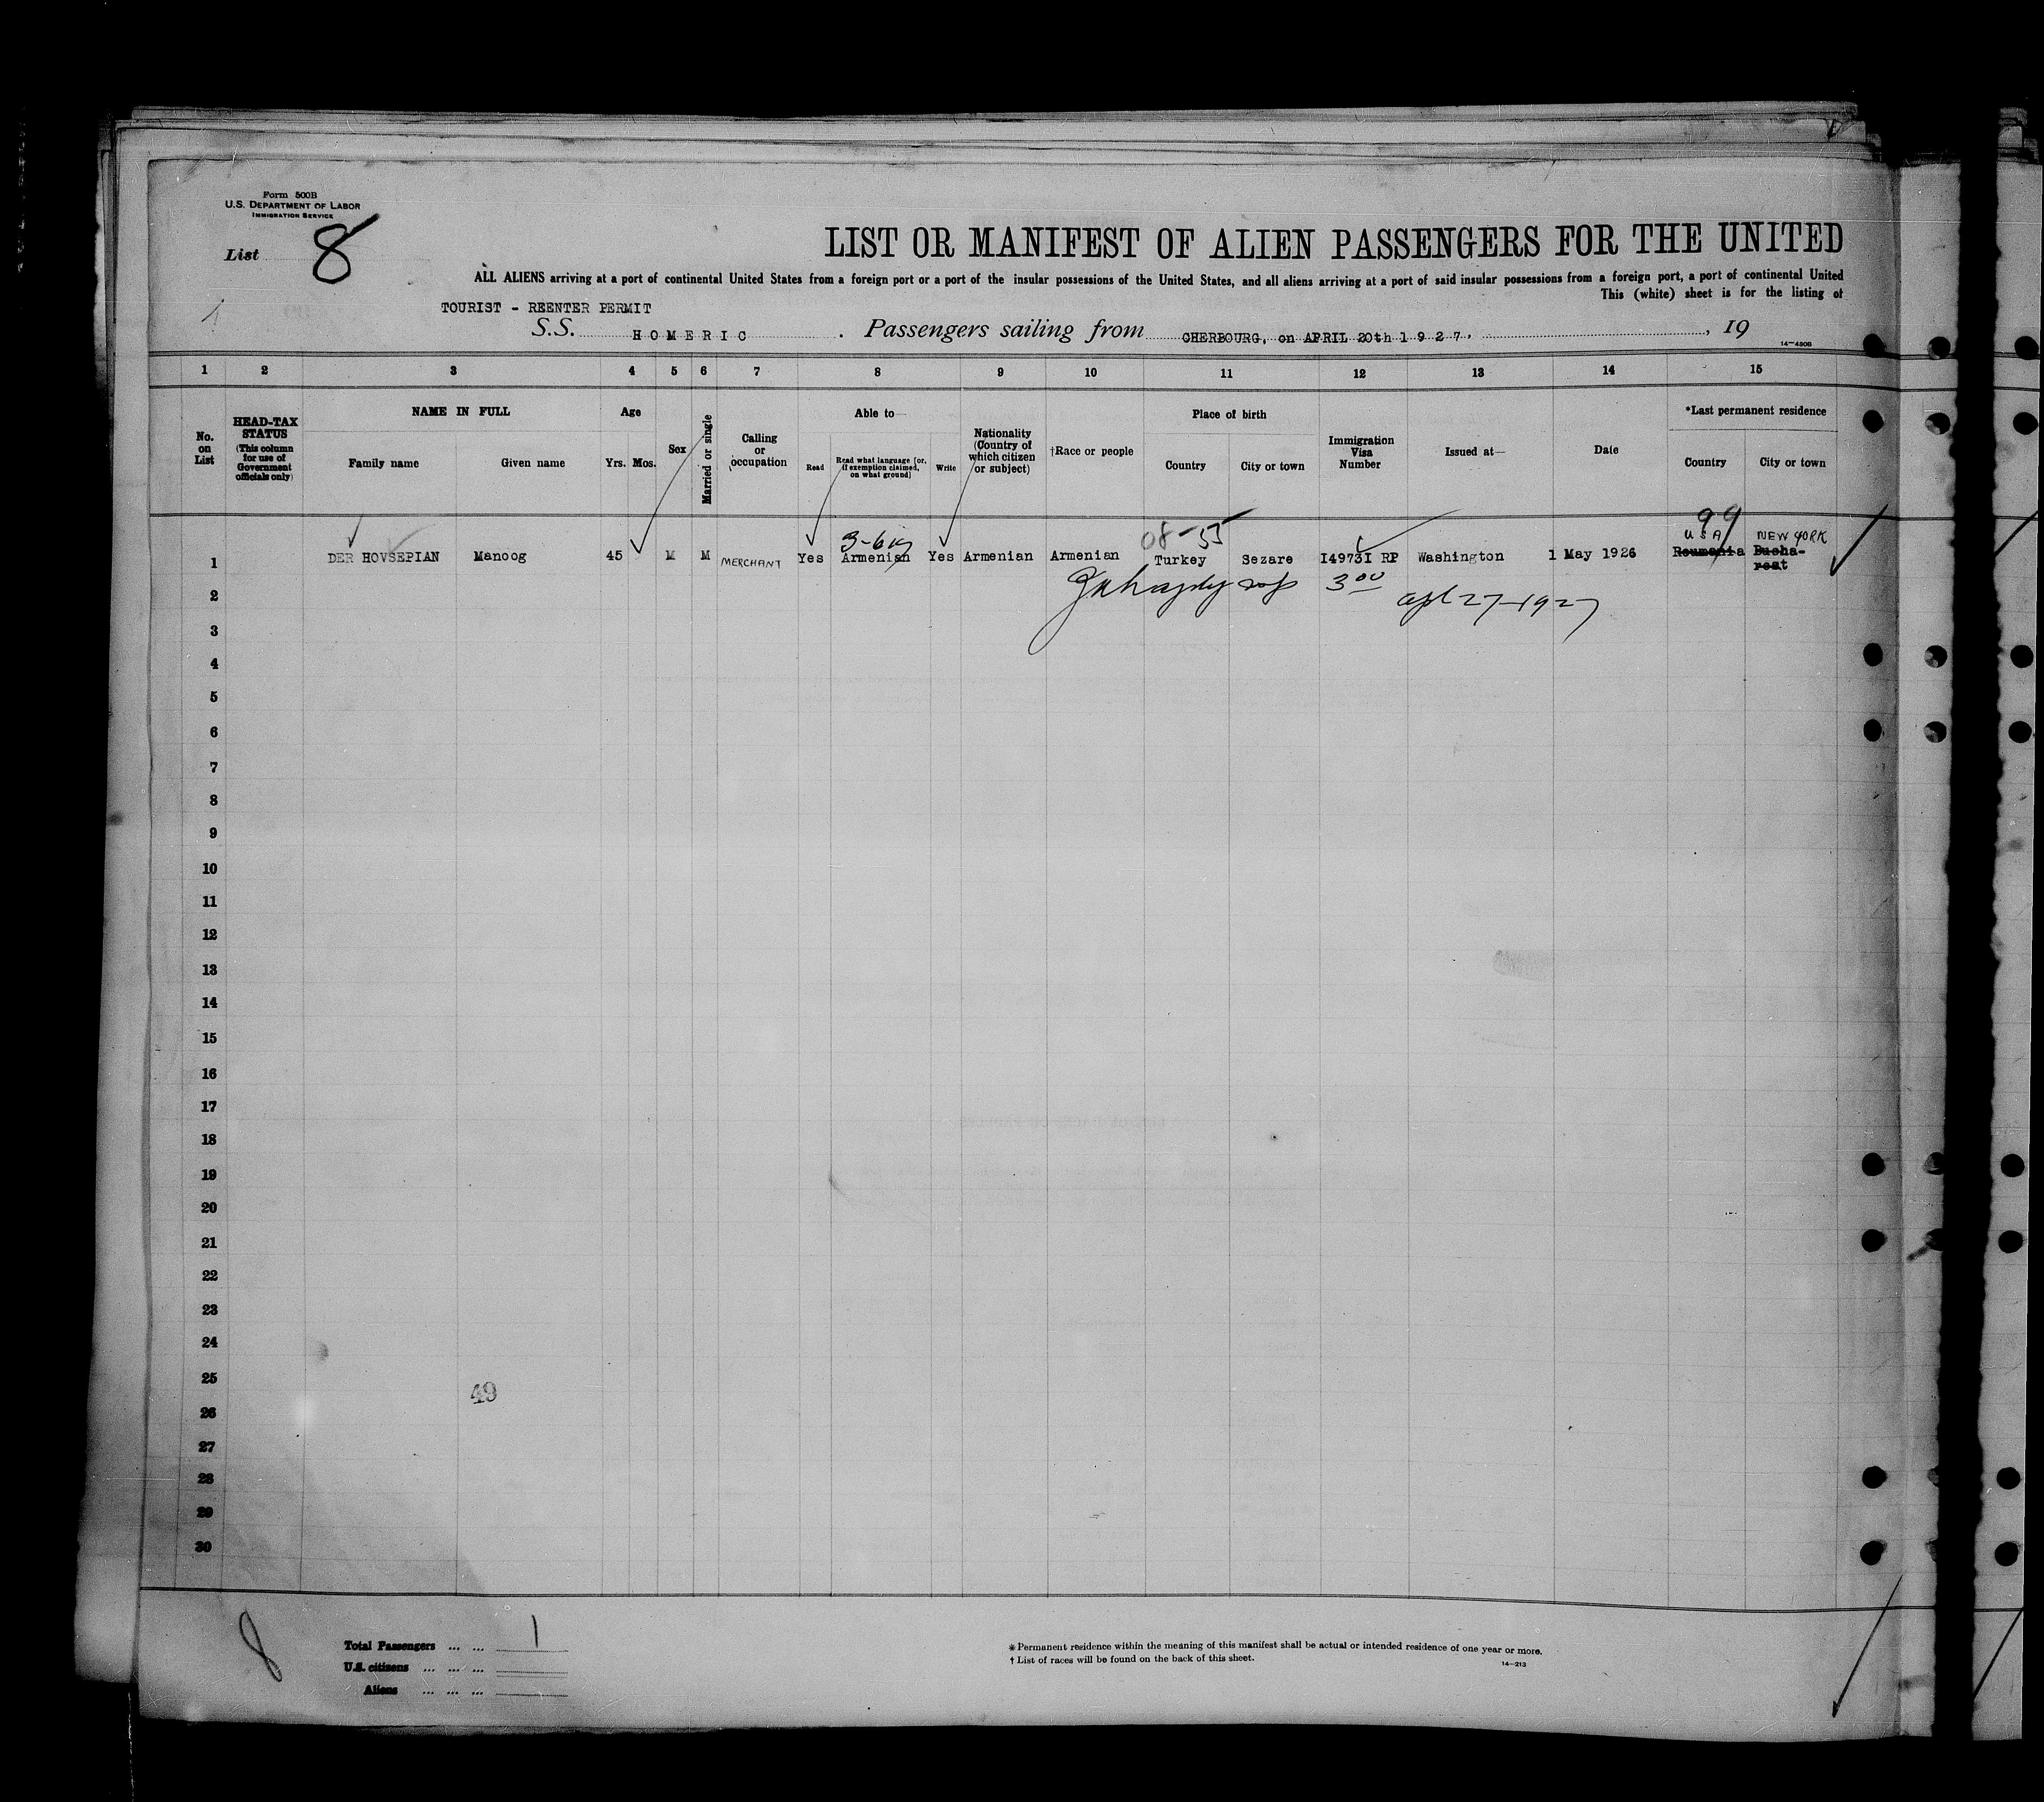 Form 500B
U.S. DEPARTMENT OF LABOR
IMMIGRATION SERVICE
List 8
LIST OR MANIFEST OF ALIEN PASSENGERS FOR THE UNITED
ALL ALIENS arriving at a port of continental United States from a foreign port or a port of the insular possessions of the United States, and all aliens arriving at a port of said insular possessions from a foreign port, a port of continental United
This (white) sheet is for the listing of
TOURIST - REENTER PERMIT
S.S. HOMERIC. Passengers sailing from CHERBOURG, on APRIL 20th 1927, , 19
14-430B
1 2 3 4 5 6 7 8 9 10 11 12 13 14 15
No. on List
HEAD-TAX STATUS
(This column for use of Government officials only)
NAME IN FULL
Family name Given name
Age
Yrs. Mos.
Sex
Married or single
Calling or occupation
Able to—
Read
Read what language [or, if exemption claimed, on what ground]
Write
Nationality (Country of which citizen or subject)
†Race or people
Place of birth
Country City or town
Immigration Visa Number
Issued at—
Date
*Last permanent residence
Country City or town
99
08-55
USA NEW YORK
1 DER HOVSEPIAN Manoog 45 M M MERCHANT Yes Armenian Yes Armenian Armenian Turkey Sezare I4973I RP Washington 1 May 1926 Roumania Bucha-
rest
2 3 00 Apl 27-1927
3
4
5
6
7
8
9
10
11
12
13
14
15
16
17
18
19
20
21
22
23
24
25
49
26
27
28
29
30
8
Total Passengers ... ... 1
U.S. citizens ... ... ...
Aliens ... ... ...
* Permanent residence within the meaning of this manifest shall be actual or intended residence of one year or more.
† List of races will be found on the back of this sheet.
14-213